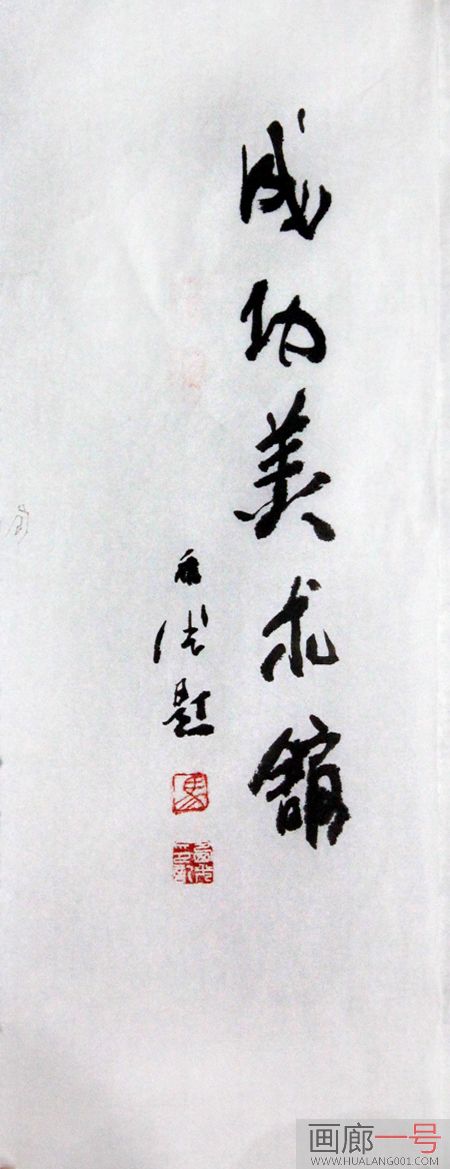 成功美术舘
题
馬
画廊一号
WWW.HUALANG001.COM